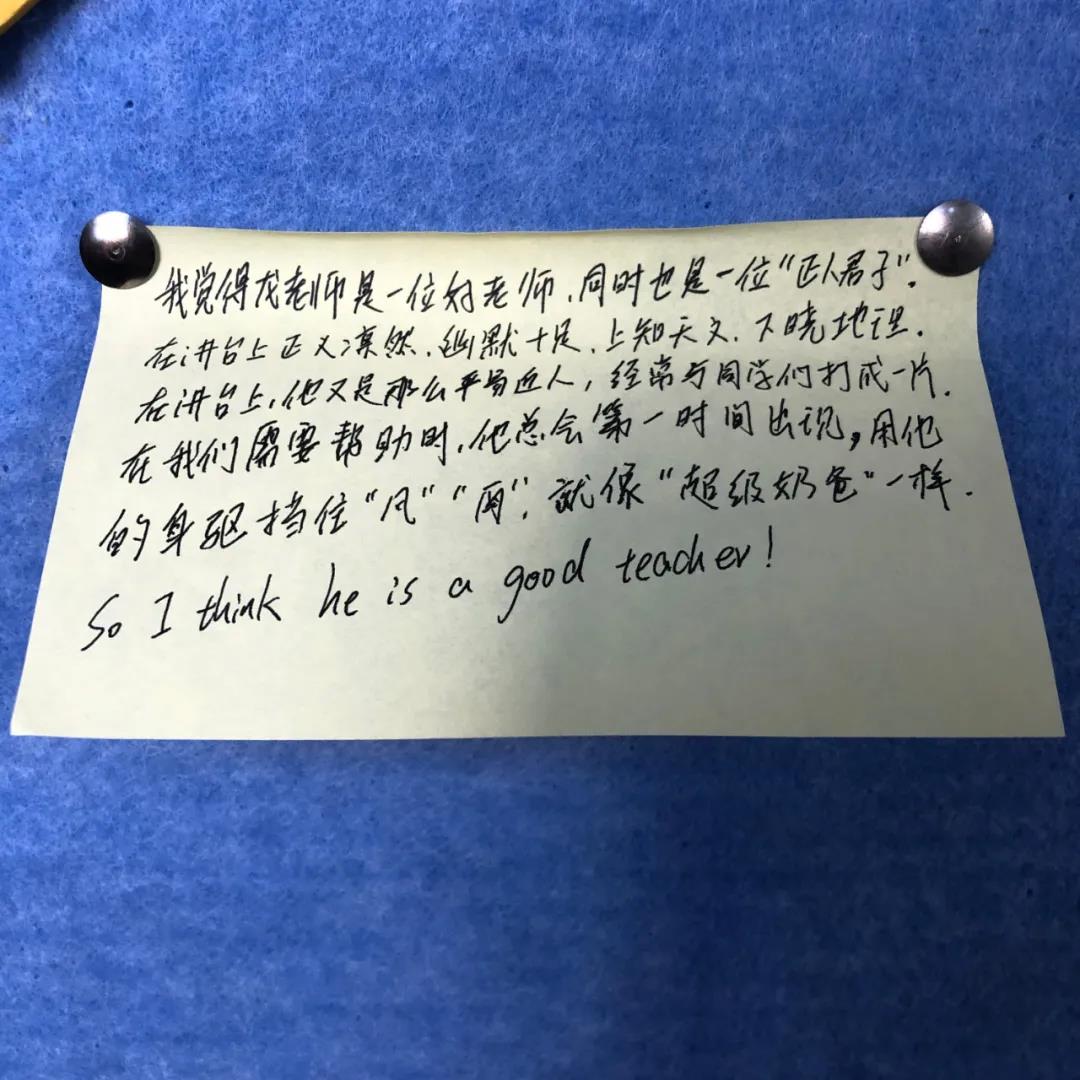 我觉得龙老师是一位好老师，同时也是一位“正人君子”。
在讲台上正义凛然，幽默十足，上知天文，下晓地理。
在讲台上，他又是那么平易近人，经常与同学们打成一片。
在我们需要帮助时，他总会第一时间出现，用他
的身驱挡住“风”“雨”，就像“超级奶爸”一样。
So I think he is a good teacher!